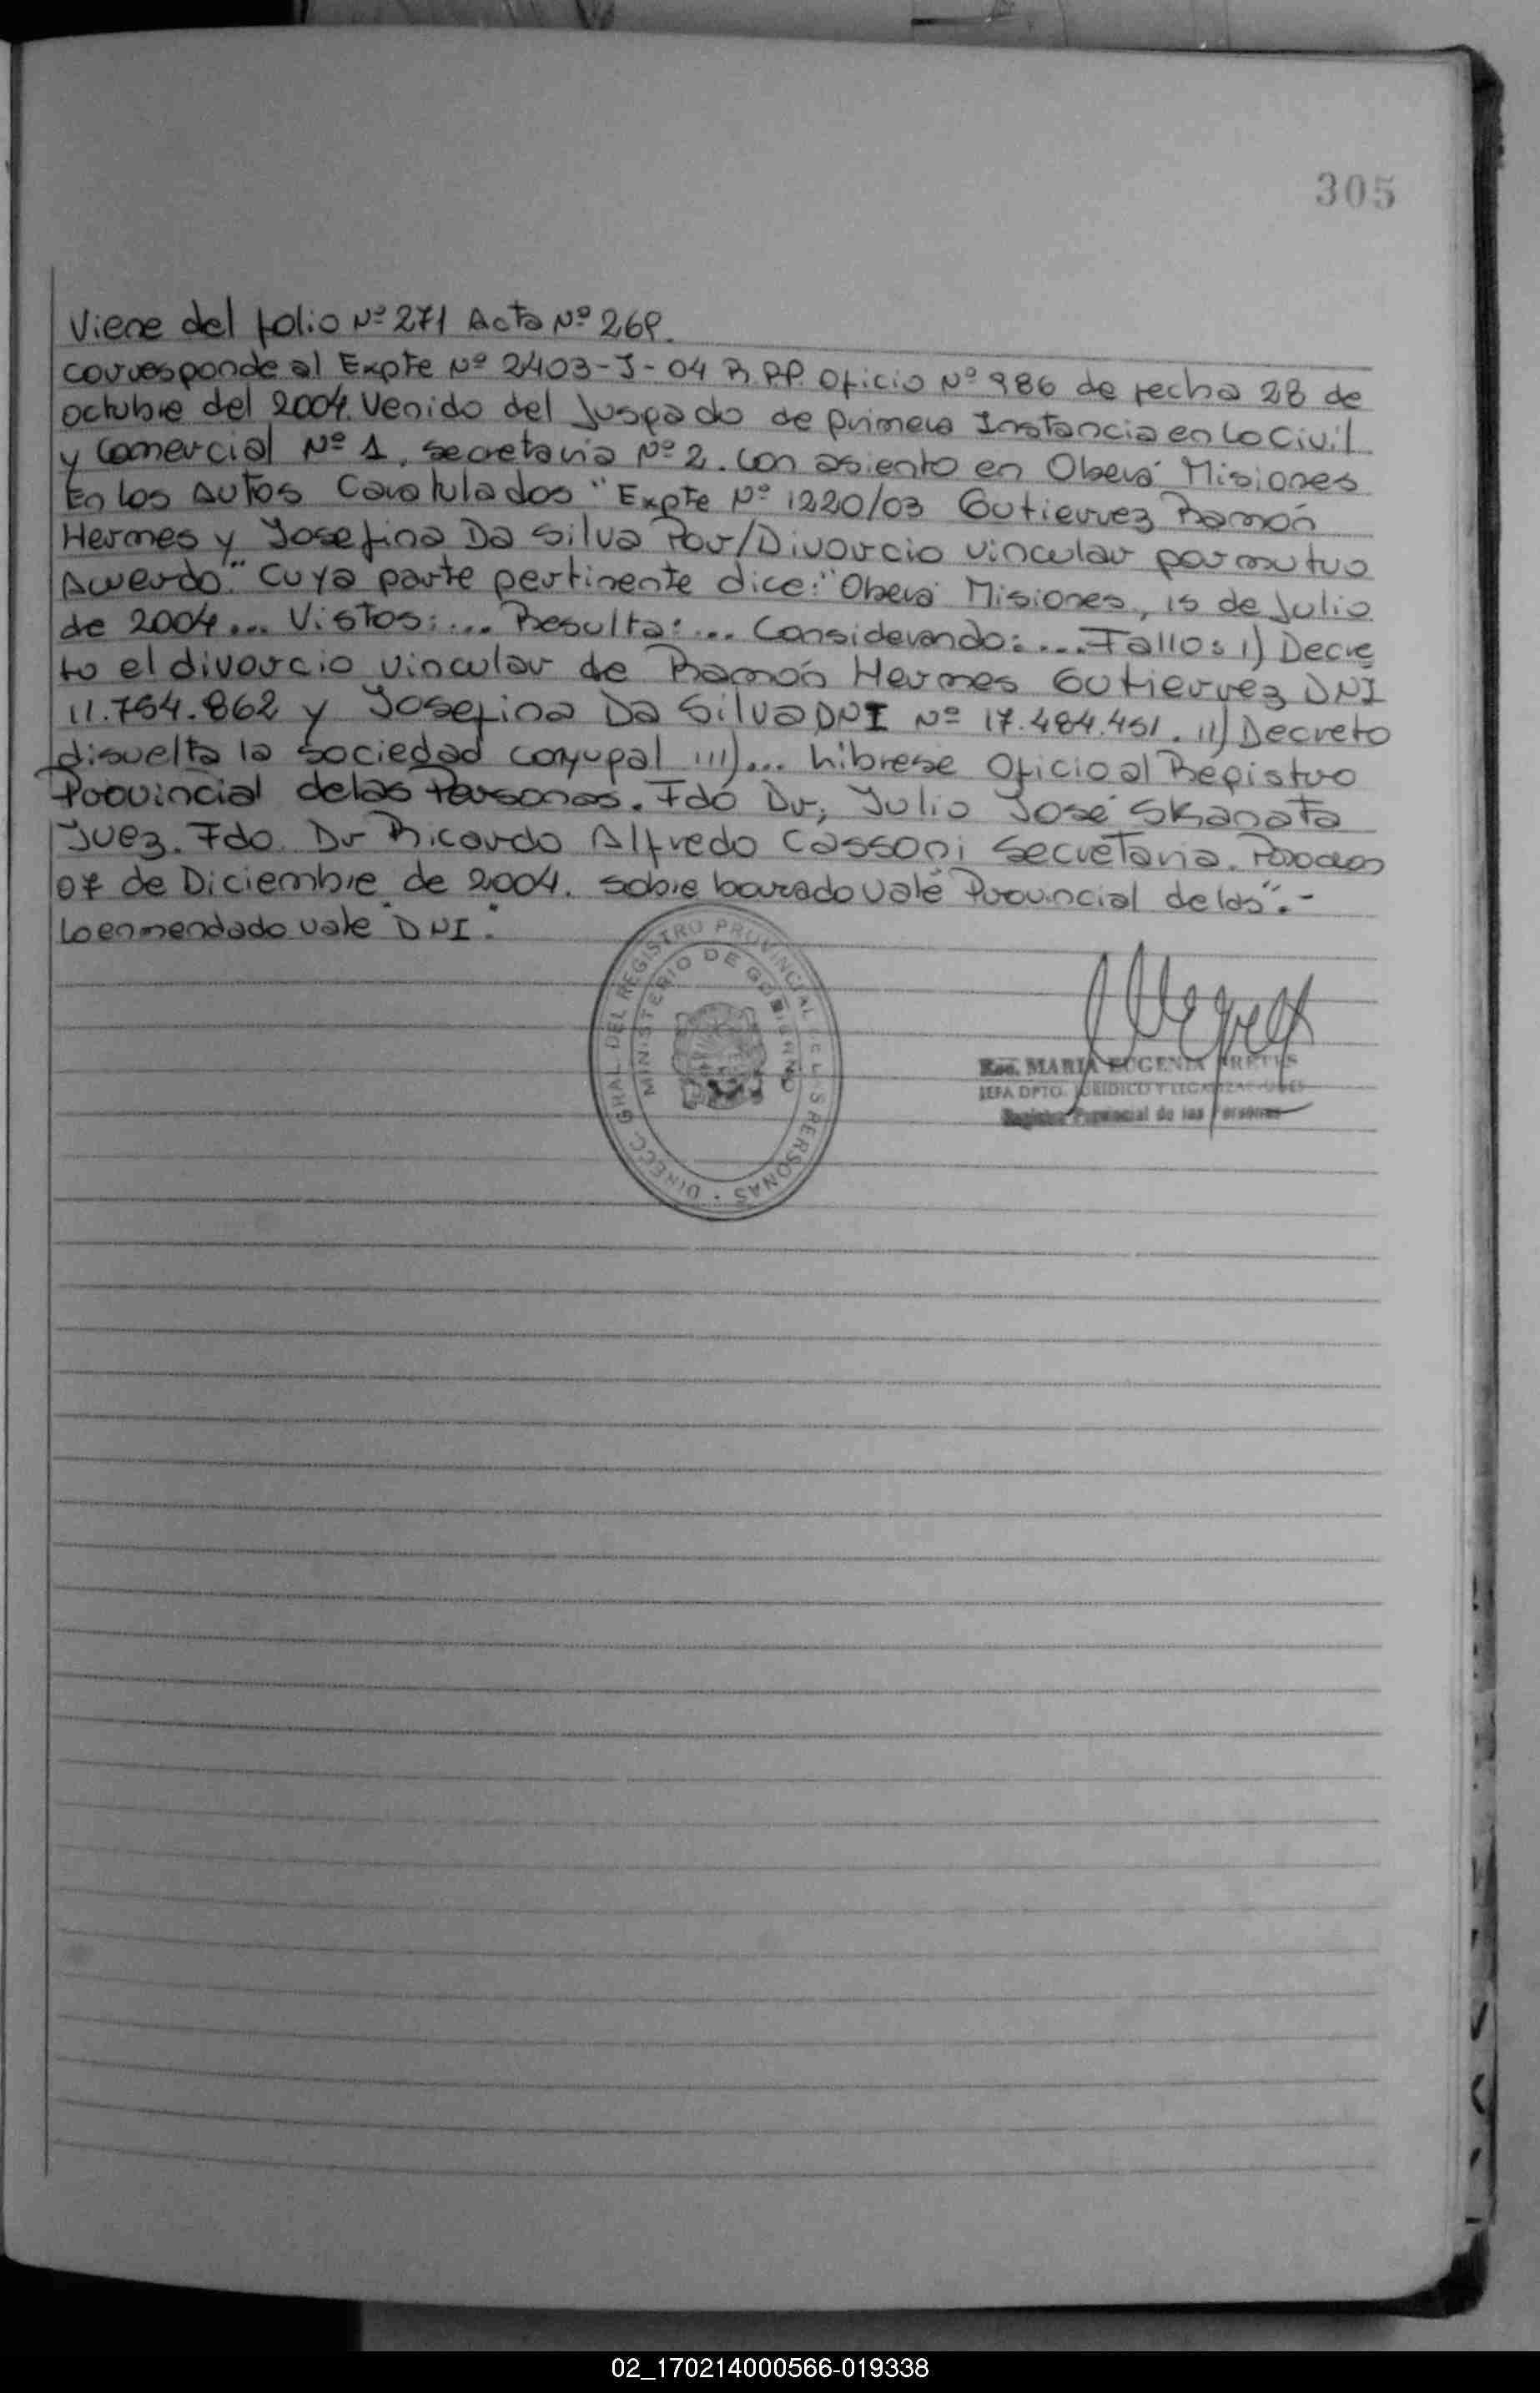 305
Viene del folio Nº 271 Acta Nº 269.
corresponde al Expte Nº 2403-J-04 R.P.P. Oficio Nº 986 de fecha 28 de
octubre del 2004. Venido del Juspado de primera Instancia en Lo Civil
y Comercial Nº 1, secretaria Nº 2. con asiento en Oberá Misiones
En los Autos Caratulados "Expte Nº 1220/03 Gutierrez Ramón
Hermes y Josefina Da Silva Por/Divorcio vincular por mutuo
Acuerdo." Cuya parte pertinente dice: "Oberá Misiones, 15 de Julio
de 2004... Vistos:... Resulta:... Considerando:... Fallo: I) Decre
to el divorcio vincular de Ramón Hermes Gutierrez DNI
11.754.862 y Josefina Da Silva DNI Nº 17.484.451. II) Decreto
disuelta la sociedad conyugal III)... Librese Oficio al Registro
Provincial de las Personas. Fdo Dr, Julio José Skanata
Juez. Fdo. Dr Ricardo Alfredo Cassoni Secretaria. Posadas
07 de Diciembre de 2004. sobre borrado vale "Provincial de las".-
Lo enmendado vale "DNI".
DIRECC. GRAL DEL REGISTRO PROVINCIAL DE LAS PERSONAS
MINISTERIO DE GOBIERNO
MARIA EUGENIA
JEFA DPTO. JURIDICO Y LEGALIZACIONES
Registro Provincial de las Personas
02_170214000566-019338